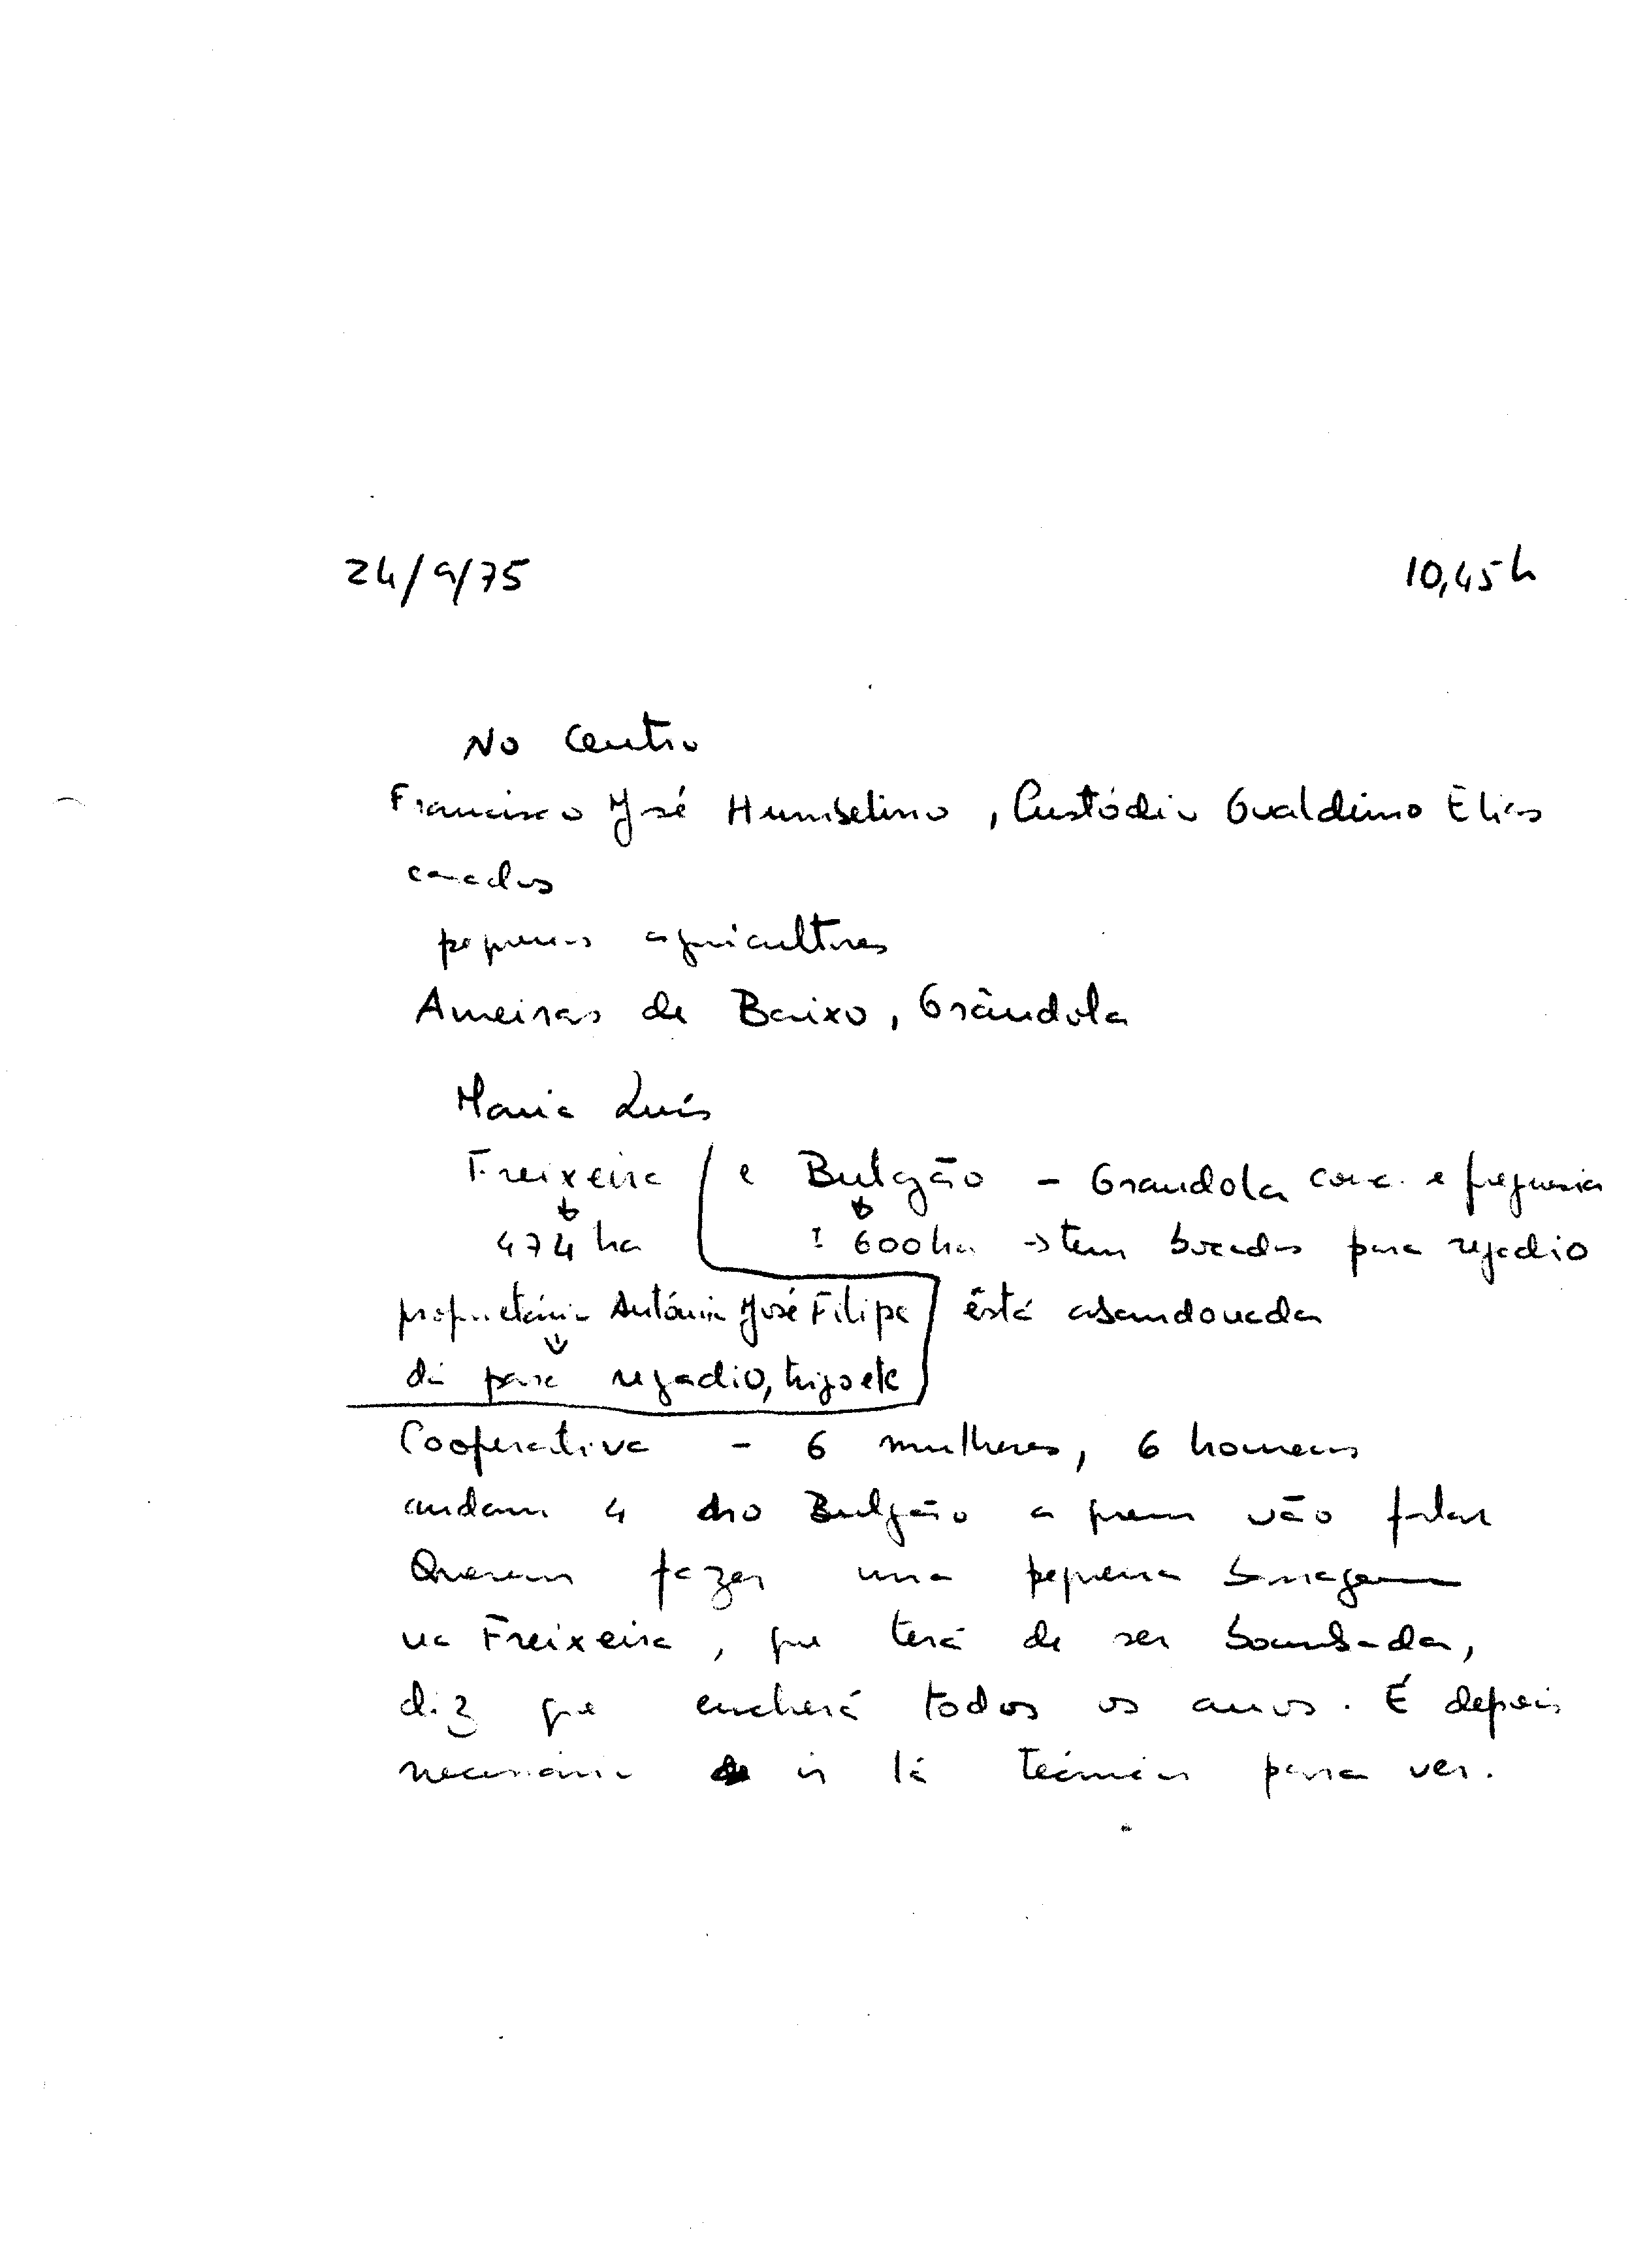 24/9/75 10,45h
No Centro
Francisco José Humbelino, Custódio Gualdino Elias
casados
pequenos agricultores
Ameiras de Baixo, Grândola
Maria Luís
Freixeira e Bulgão - Grandola conc. e freguesia
474 ha ! 600 ha → tem bocados para regadio
proprietária Antónia José Filipe está abandonada
dá para regadio, trigo etc
Cooperativa - 6 mulheres, 6 homens
andam 4 no Bulgão a quem vão falar
Querem fazer uma pequena barragem
na Freixeira, que terá de ser bombada,
diz que encherá todos os anos. É depois
necessário ir lá técnicos para ver.